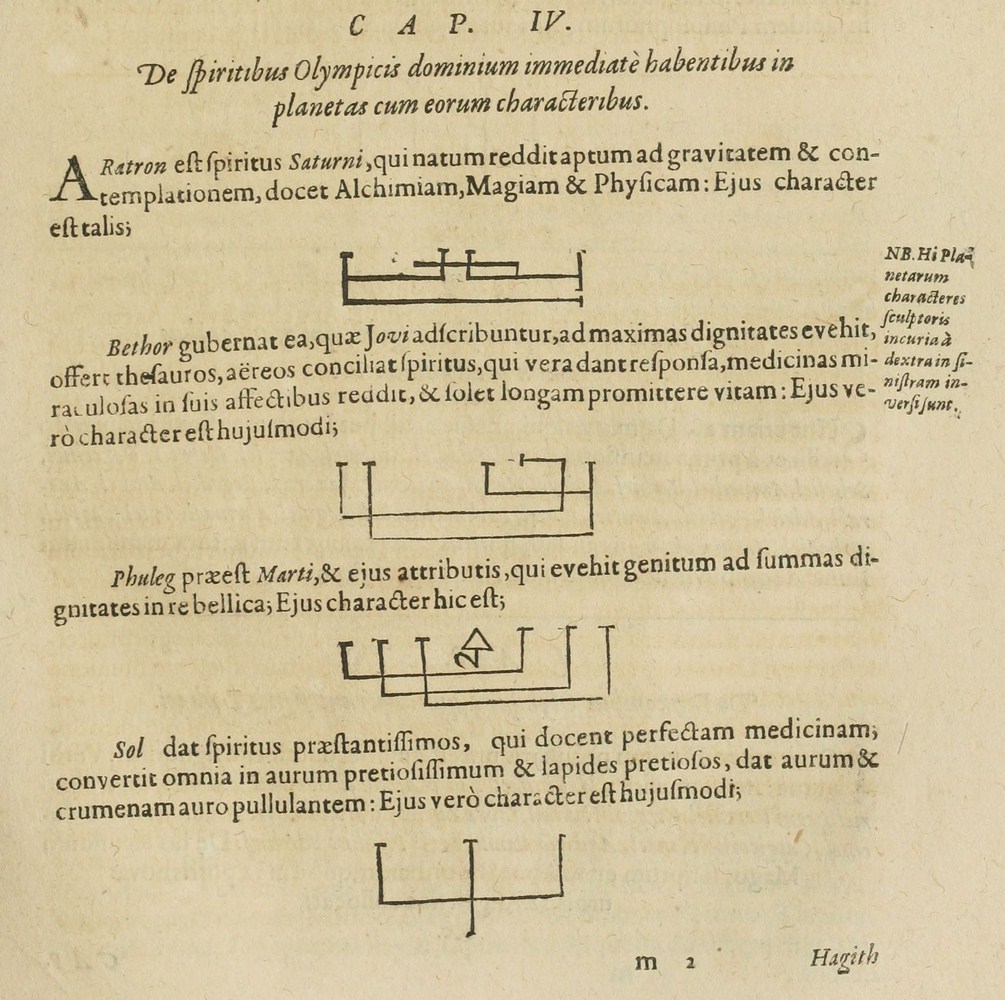 CAP. IV.
De ſpiritibus Olympicis dominium immediatè habentibus in
planetas cum eorum characteribus.
ARatron eſt ſpiritus Saturni, qui natum reddit aptum ad gravitatem & con-
templationem, docet Alchimiam, Magiam & Phyſicam: Ejus character
eſt talis;
NB. Hi Pla-
netarum
characteres
ſculptoris
incuria à
dextra in ſi-
niſtram in-
verſi ſunt.
Bethor gubernat ea, quæ Jovi adſcribuntur, ad maximas dignitates evehit,
offert theſauros, aëreos conciliat ſpiritus, qui vera dant reſponſa, medicinas mi-
raculoſas in ſuis affectibus reddit, & ſolet longam promittere vitam: Ejus ve-
rò character eſt hujuſmodi;
Phuleg præeſt Marti, & ejus attributis, qui evehit genitum ad ſummas di-
gnitates in re bellica; Ejus character hic eſt;
Sol dat ſpiritus præſtantiſſimos, qui docent perfectam medicinam;
convertit omnia in aurum pretioſiſſimum & lapides pretioſos, dat aurum &
crumenam auro pullulantem: Ejus verò character eſt hujuſmodi;
m 2
Hagith